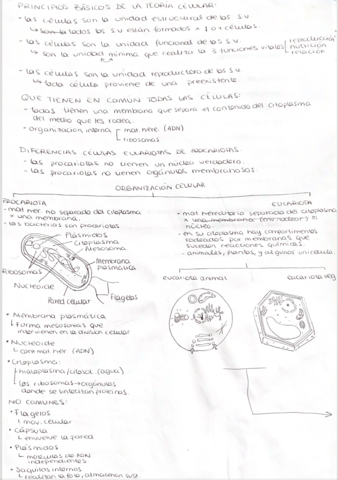 PRINCIPIOS BÁSICOS DE LA TEORÍA CELULAR:
- las células son la unidad estructural de los s.v.
todos los s.v están formados x 1 o + células.
- las células son la unidad funcional de los s.v.
son la unidad mínima que realiza la 3 funciones vitales
reproducción
nutrición
relación
- las células son la unidad reproductora de los s.v
toda célula proviene de una preexistente
QUE TIENEN EN COMUN TODAS LAS CÉLULAS:
- todas tienen una membrana que separa el contenido del citoplasma
del medio que les rodea.
- organización interna
mat. here. (ADN)
ribosomas
DIFERENCIAS CÉLULAS EUCARIOTAS DE PROCARIOTAS:
- las procariotas no tienen un núcleo verdadero.
- las procariotas no tienen orgánulos membranosos.
ORGANIZACIÓN CELULAR
PROCARIOTA
- mat her no separado del citoplasma
x una membrana.
- las bacterias son procariotas
Plásmidos
Citoplasma
Mesosoma
Membrana
plasmática
Ribosomas
Nucleoide
Pared celular
Flagelos
• Membrana plasmática
forma mesosomas que
intervienen en la división celular
• Nucleoide
mat her (ADN)
• Citoplasma:
hialoplasma/citosol (agua)
los ribosomas → orgánulos
donde se sintetizan proteínas.
NO COMUNES:
• Flagelos
mov. celular
• Cápsula
envuelve la pared
• Plásmidos
moléculas de ADN
independientes
• Saquitos internos
realizan la foto, almacenan sust.
EUCARIOTA
• mat hereditario separado del citoplasma
x una membrana
núcleo.
• en su citoplasma hay compartimentos
rodeados por membranas que
sucedan reacciones químicas.
- animales, plantas, y algunos unicelula.
eucariota animal
eucariota veg